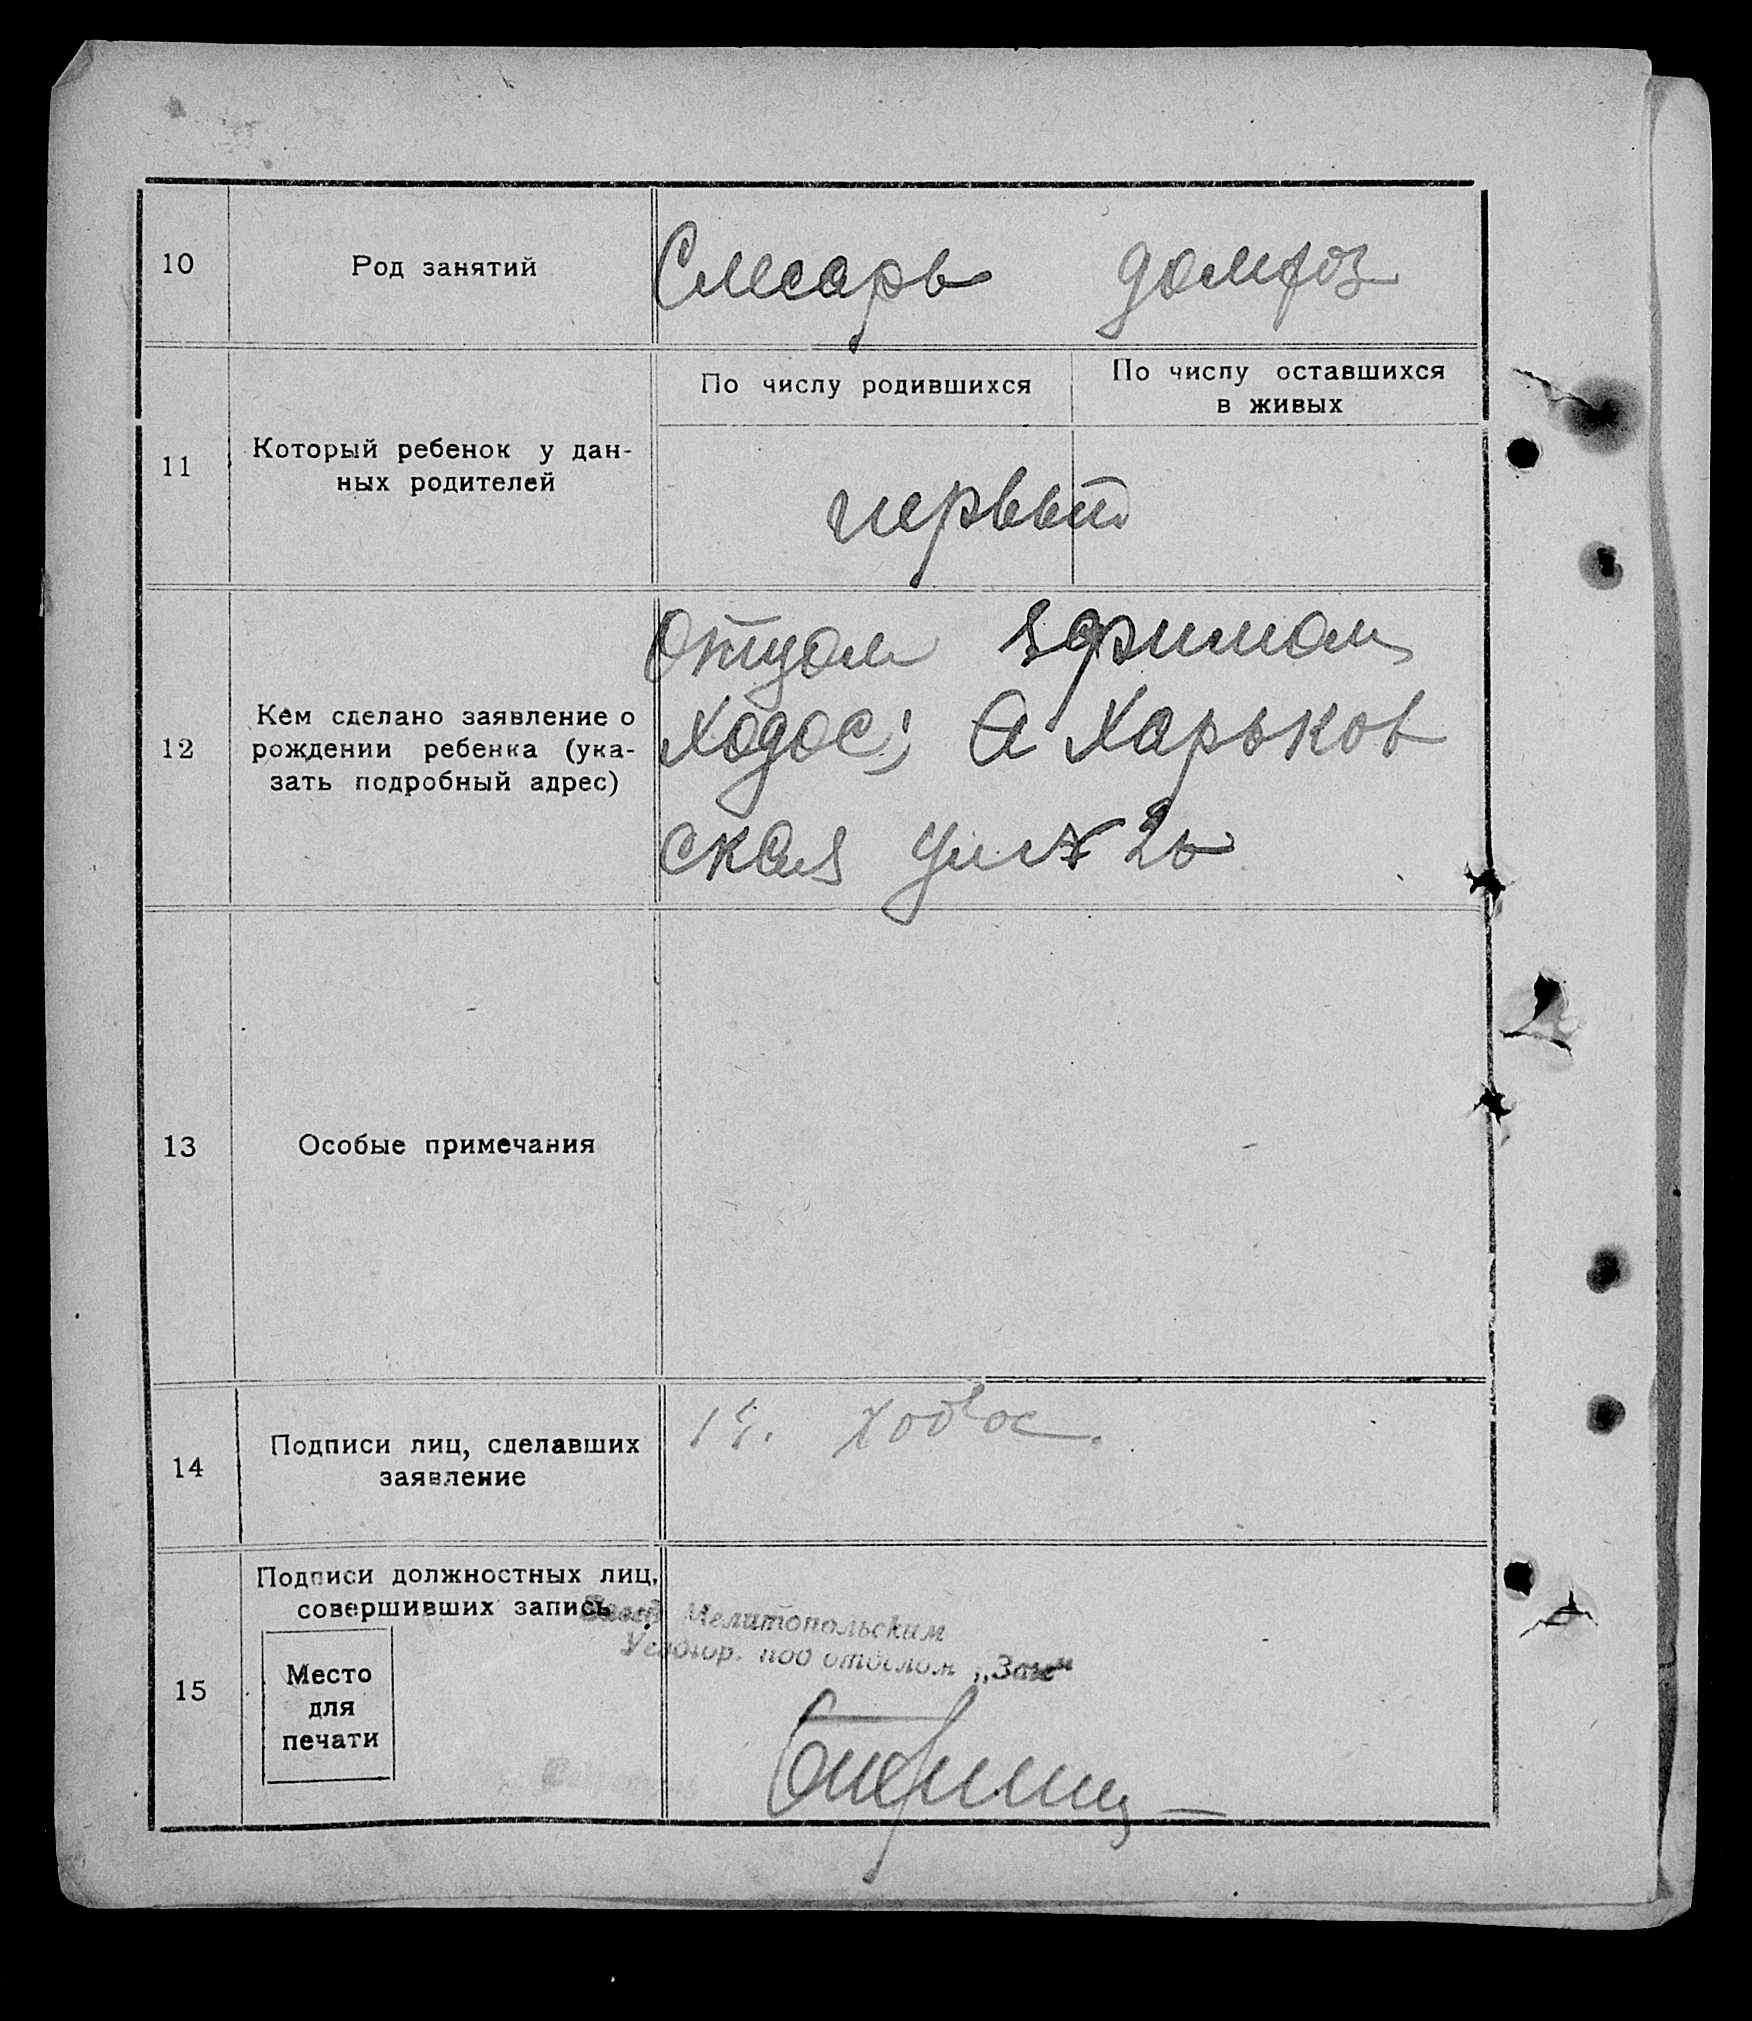 10 Род занятий Слесарь домхоз
По числу родившихся По числу оставшихся
в живых
11 Который ребенок у дан-
ных родителей
первый
12 Кем сделано заявление о
рождении ребенка (ука-
зать подробный адрес)
Отцом Ефимом
Ходос; А Харьков
ская ул №
13 Особые примечания
14 Подписи лиц, сделавших
заявление
Ходос.
15 Подписи должностных лиц,
совершивших запись
Место
для
печати
Завед Мелитопольским
под отделом „Загс“